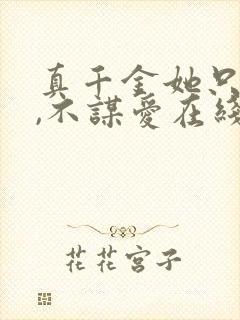 真千金她只
,不謀愛在綫
花花宮子